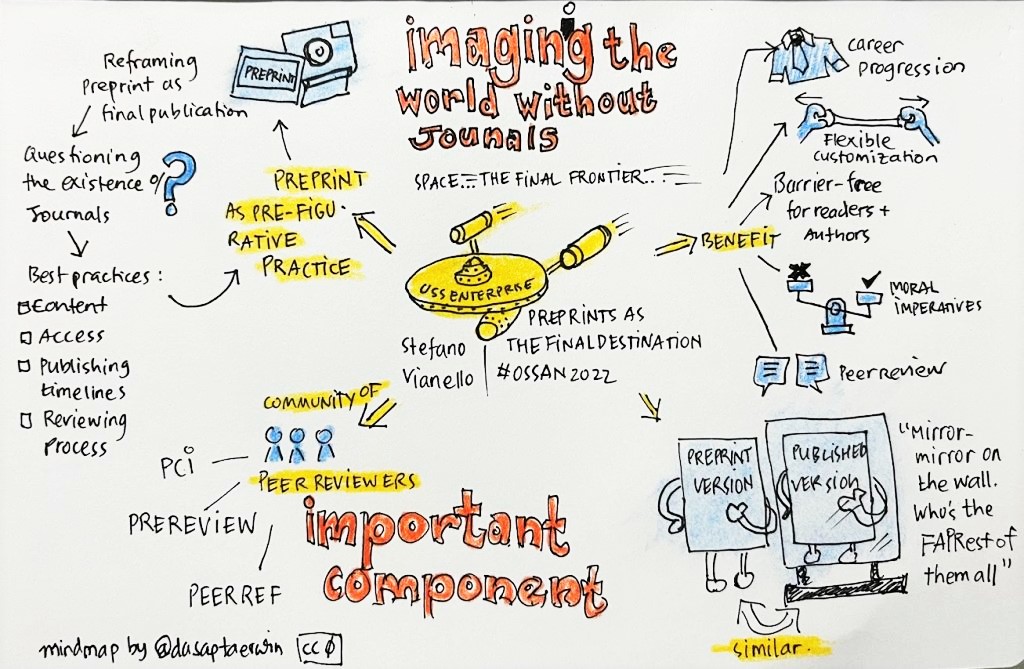 imaging the
world without
Jounals
SPACE... THE FINAL FRONTIER...
Reframing
preprint as
final publication
PREPRINT
Questioning
the existence of
Journals
?
Best practices :
Content
Access
Publishing
timelines
Reviewing
Process
PREPRINT
AS PRE-FIGU-
RATIVE
PRACTICE
USS ENTERPRISE
PREPRINTS AS
THE FINAL DESTINATION
#OSSAN2022
Stefano
Vianello
BENEFIT
career
progression
Flexible
customization
Barrier-free
for readers +
Authors
MORAL
IMPERATIVES
Peer review
COMMUNITY OF
PEER REVIEWERS
PCI
PREREVIEW
PEERREF
important
component
PREPRINT
VERSION
PUBLISHED
VERSION
"Mirror-
mirror on
the wall.
who's the
FAIRest of
them all"
similar.
mindmap by @dasaptaerwin CC0